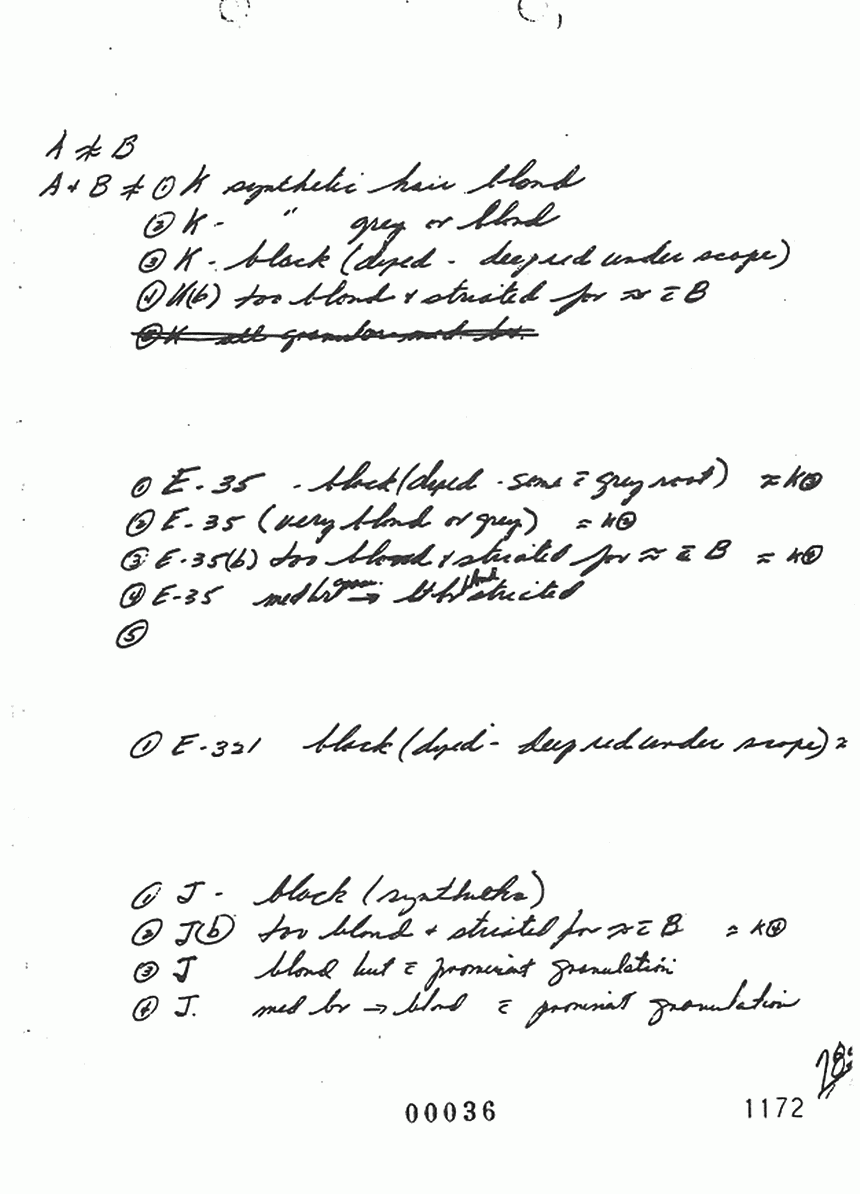 A ≠ B
A + B ≠ ① K synthetic hair blond
② K - " grey or blond
③ K - black (dyed - deep red under scope)
④ K(b) too blond + striated for ≈ c̄ B
⑤ K all granular med. br.
① E-35 - black (dyed - some c̄ grey root) ≈ K③
② E-35 (very blond or grey) = K②
③ E-35(b) too blond + striated for ≈ c̄ B ≈ K④
④ E-35 med br gran. → lt br blond striated
⑤
① E-321 black (dyed - deep red under scope) ≈
① J - black (synthetic)
② J(b) too blond + striated for ≈ c̄ B ≈ K④
③ J blond but c̄ prominent granulation
④ J. med br → blond c̄ prominent granulation
00036
1172